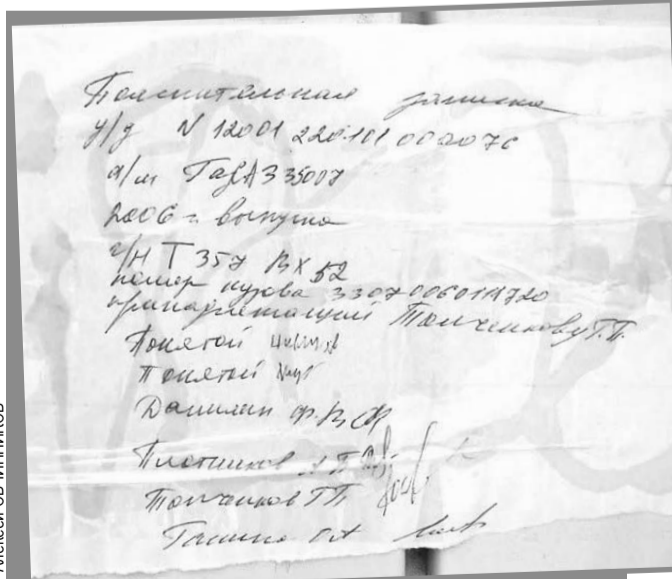 Пояснительная записка
у/д N 12001 220101 000076
а/м ГАЗ А3 35007
2006 г выпуска
г/н Т 357 ВХ 52
номер кузова 33070060114720
принадлежащий Топченкову Т.П.
Понятой
Понятой
Данилин Ф.В.
Плотников А П
Топченков ТП
Ганина ОА
Алексей ОВЧИННИКОВ